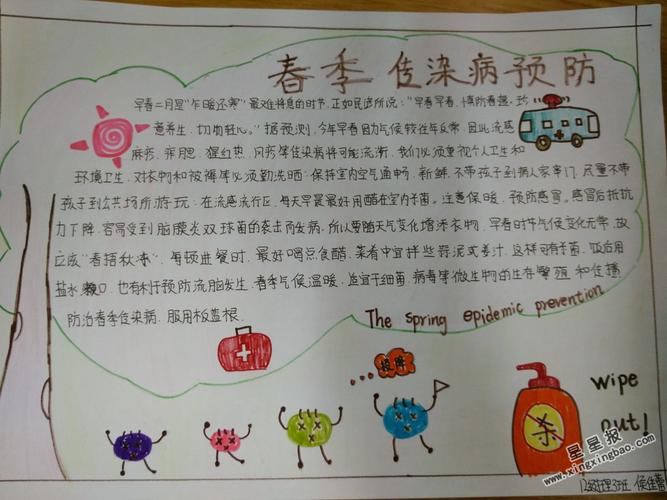 春季传染病预防
早春二月是"乍暖还寒"最难将息的时节.正如民谚所说:"早春早春,慎防春瘟,珍
意养生,切勿轻心。"据预测,今年早春因为气候较往年反常.因此流感
麻疹.猩红热.风疹等传染病将可能流渐.我们必须重视个人卫生和
环境卫生.对衣物和被褥等必须勤洗晒:保持室内空气通畅.新鲜.不带孩子到病人家串门.尽量不带
孩子到公共场所游玩:在流感流行区.每天早晨最好用醋在室内杀菌。注意保暖.预防感冒。感冒后抵抗
力下降.容易受到脑膜炎双球菌的袭击而发病.所以要随天气变化增添衣物.早春时节气候变化无常.故
应应"春捂秋冻".每顿进餐时.最好喝点食醋.菜肴中宜拌些蒜泥或姜汁.这样可有杀菌.饭后用
盐水漱口.也有利于预防流脑发生.春季气候温暖.适宜于细菌.病毒等微生物的生存繁殖和传播
防治春季传染病.服用板蓝根.
The spring epidemic prevention
投降
杀
wipe
out!
星星报
www.xingxingbao.com
班